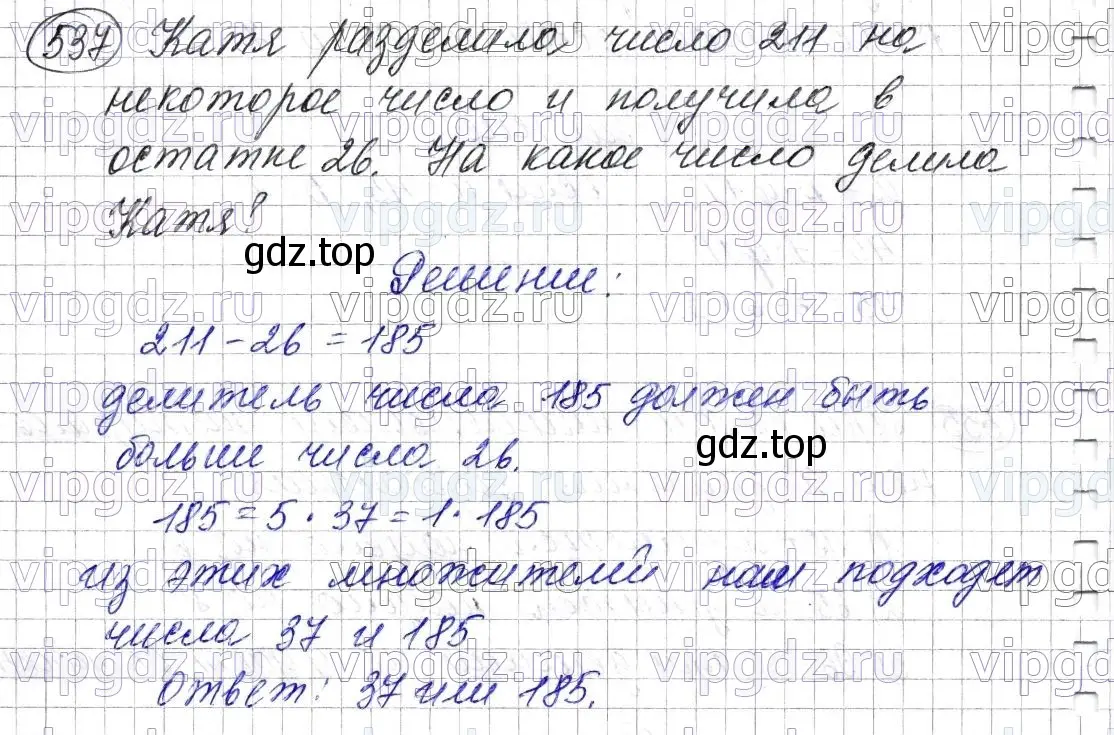 537 Катя разделила число 211 на
некоторое число и получила в
остатке 26. На какое число делила
Катя?
gdz.top
Решение:
211 - 26 = 185
делитель числа 185 должен быть
больше числа 26.
gdz.top
185 = 5 · 37 = 1 · 185
из этих множителей нам подходят
числа 37 и 185
Ответ: 37 или 185.
vipgdz.ru